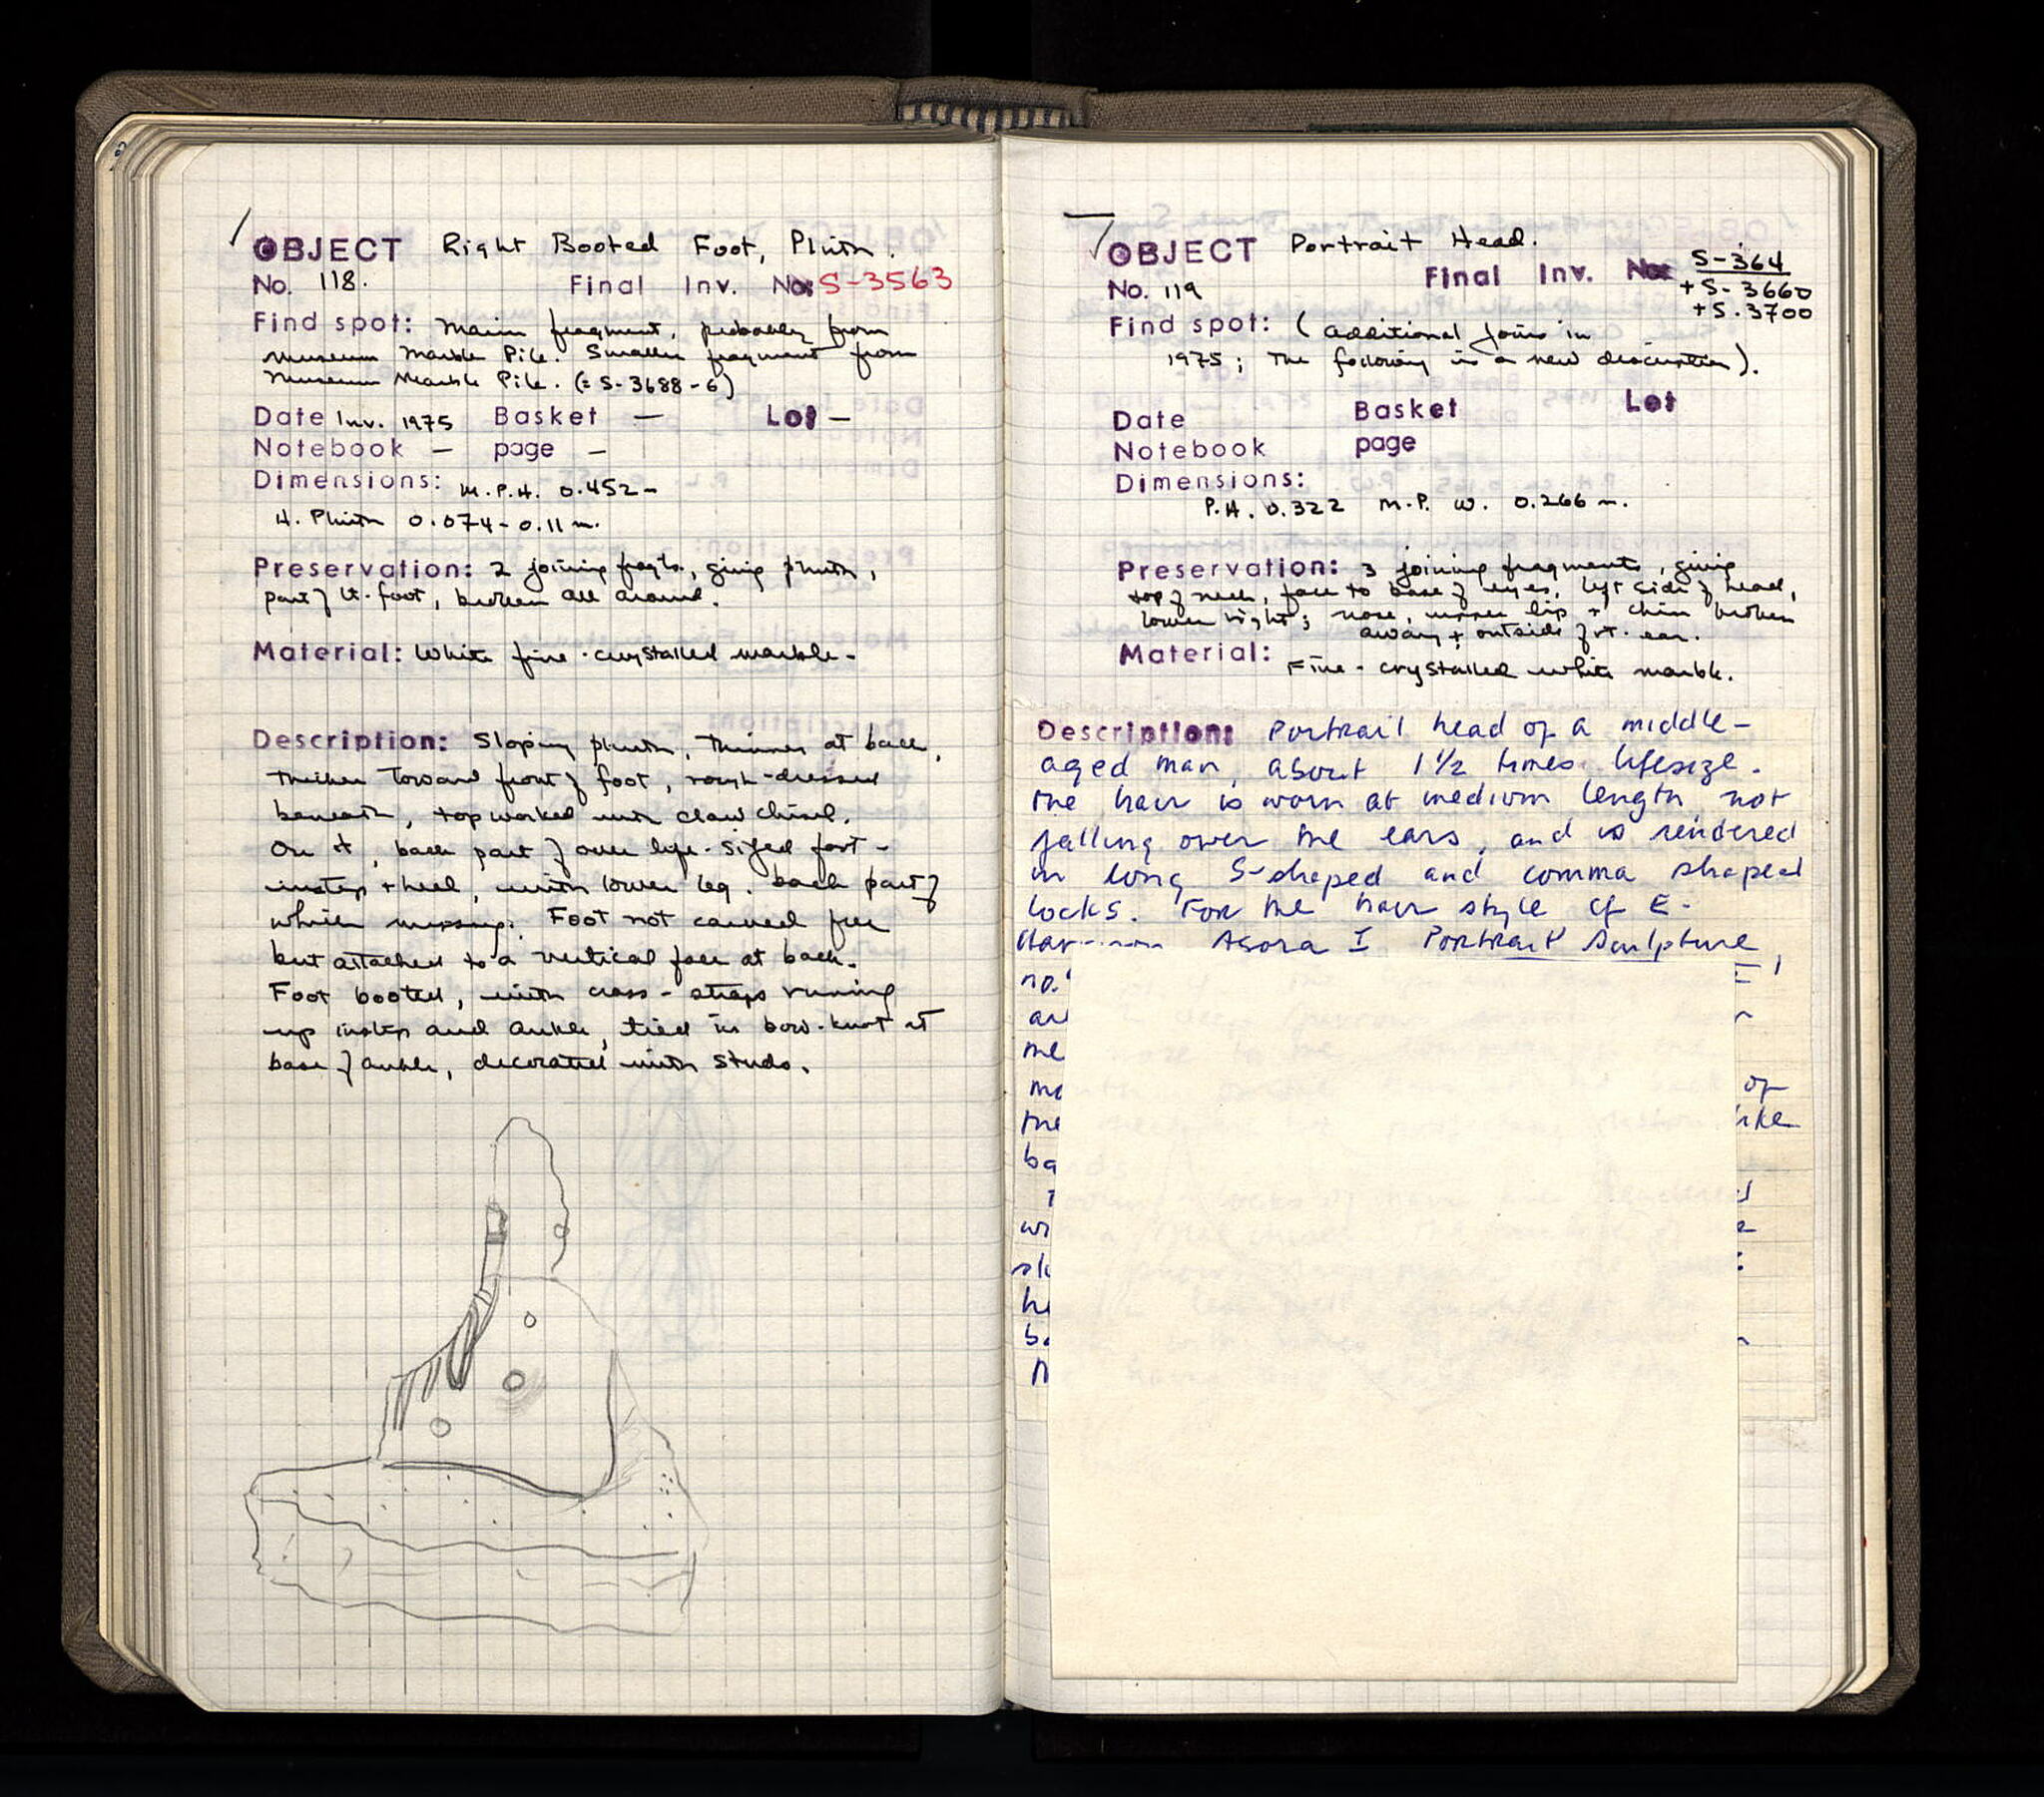 OBJECT Right Booted Foot, Plinth.
No. 118. Final Inv. No: S-3563
Find spot: Main fragment, probably from
Museum Marble Pile. Smaller fragment from
Museum Marble Pile. (= S-3688-6)
Date Inv. 1975 Basket — Lot —
Notebook — page —
Dimensions: M.P.H. 0.452-
H. Plinth 0.074-0.11 m.
Preservation: 2 joining fragts., giving plinth,
part of lt. foot, broken all around.
Material: White fine-crystalled marble-
Description: Sloping plinth, thinner at back,
thicker toward front of foot, rough-dressed
beneath, top worked with claw chisel.
On it, back part of over life-sized foot-
instep + heel, with lower leg. back part of
which missing. Foot not carved free
but attached to a vertical face at back.
Foot booted, with cross-straps running
up instep and ankle, tied in bow-knot at
base of ankle, decorated with studs.
OBJECT Portrait Head.
No. 119 Final Inv. No: S-364
+ S-3660
+ S.3700
Find spot: (additional joins in
1975; the following is a new description).
Date Basket Lot
Notebook page
Dimensions:
P.H. 0.322 M.P. W. 0.266 m.
Preservation: 3 joining fragments, giving
top of neck, face to base of eyes, left side of head,
lower right; nose, upper lip + chin broken
away + outside of rt. ear.
Material: Fine-crystalled white marble.
Description: Portrait head of a middle-
aged man, about 1 1/2 times lifesize.
the hair is worn at medium length not
falling over the ears, and is rendered
in long S-shaped and comma shaped
locks. For the hair style cf E.
Agora I Portrait Sculpture,
no.
me
of
the
ba